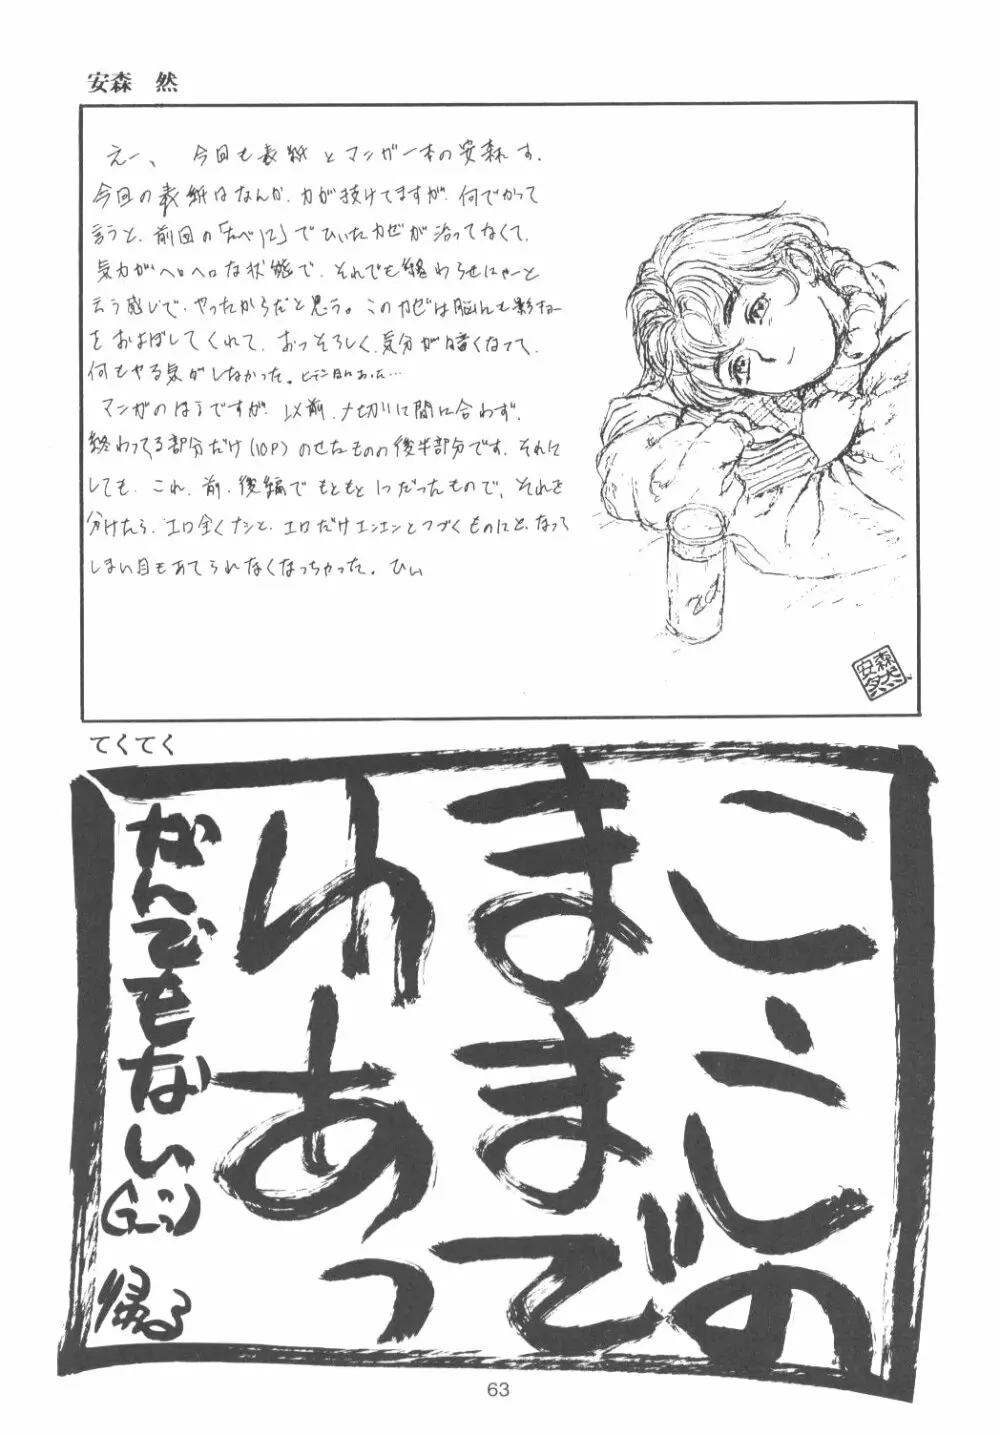 安森 然
えー、今回も表紙とマンガ一本の安森れす。
今回の表紙はなんか、力が抜けてますが、何でかって
言うと、前回の「たべに」でひいたカゼが治ってなくて、
気力がヘロヘロな状態で、それでも終わらせにゃーと
云う感じで、やったからだと思う。このカゼは脳にも影キョー
をおよぼしてくれて、おっそろしく、気分が暗くなって、
何もやる気がしなかった。
マンガのほうですが、以前、〆切りに間に合わず、
終わってる部分だけ(10P)のせたものの後半部分です。それに
しても、これ、前、後編でもともと1つだったもので、それを
分けたら、エロ全くナシと、エロだけエンエンとつづくものにと、なって
しまい目もあてられなくなっちゃった。ひぃ
zod
安森然
てくてく
こころの
ままで
れあっ
なんでもない
帰る
63